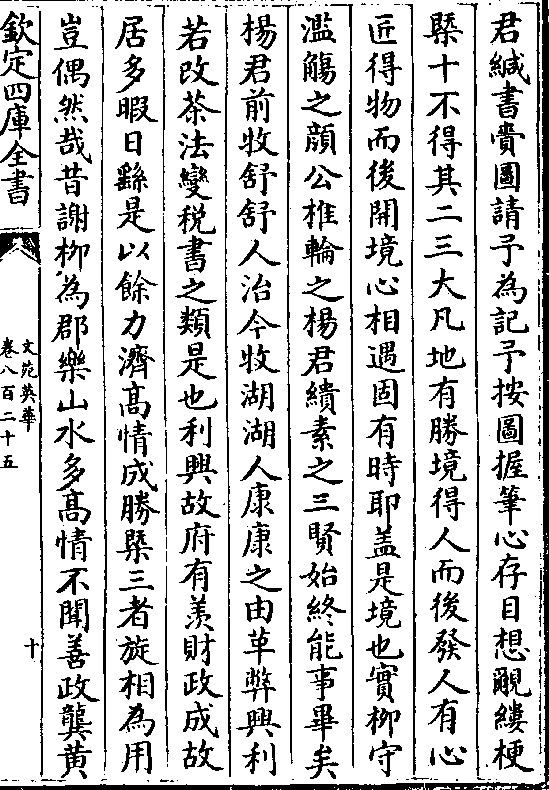 君緘書賫圖請予為記予按圖握筆心存目想覼縷梗
槩十不得其二三大凡地有勝境得人而後發人有心
匠得物而後開境心相遇固有時耶盖是境也實栁守
濫觴之顔公椎輪之楊君繢素之三賢始終能事畢矣
楊君前牧舒舒人治今牧湖湖人康康之由革弊興利
若改茶法變税書之類是也利興故府有羡財政成故
居多暇日繇是以餘力濟髙情成勝槩三者旋相為用
豈偶然哉昔謝栁為郡樂山水多髙情不聞善政龔黄
欽定四庫全書
文苑英華
卷八百二十五
十